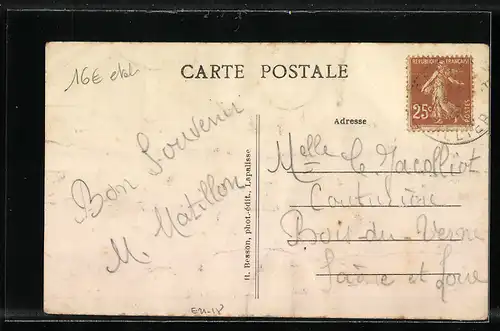 16€
CARTE POSTALE
RÉPUBLIQUE FRANÇAISE
POSTES
25c
Adresse
Bon Souvenir
M. Matillon
H. Besson, phot.-édit., Lapalisse
Melle le Jacolliot
Couturière
Bois du Verne
Saône et Loire